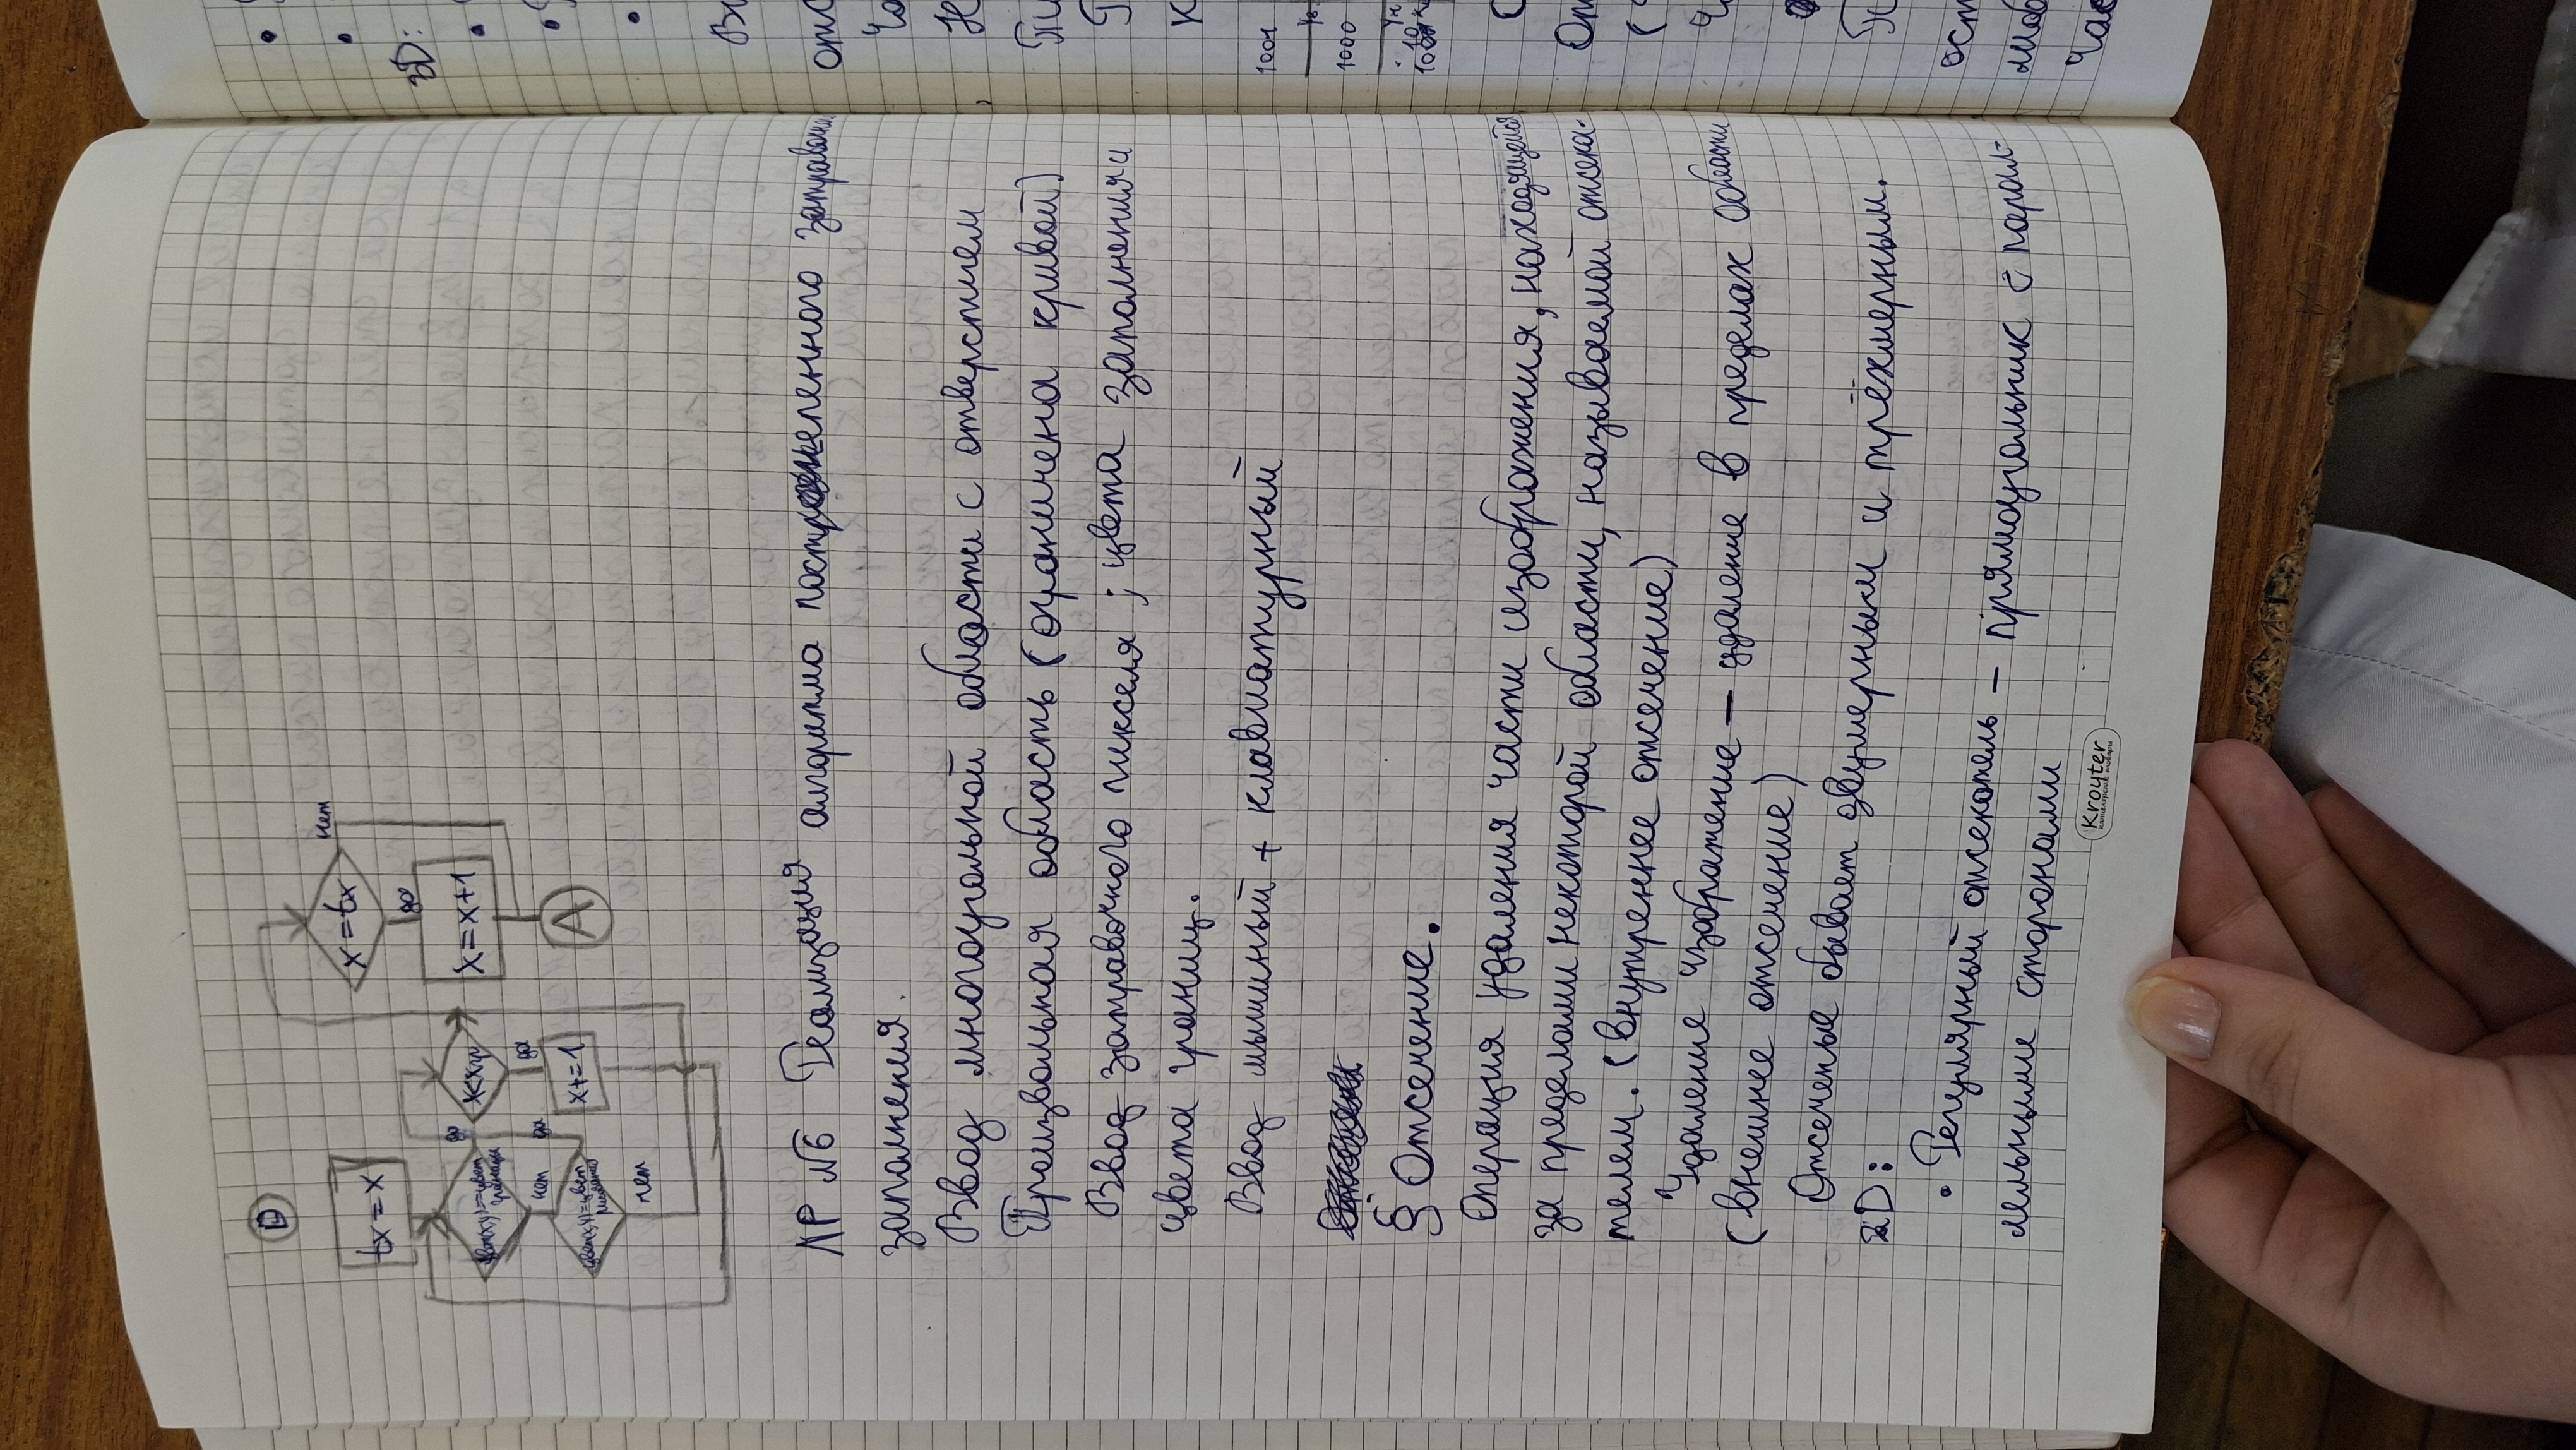 D
tx = x
x = tx
нет
да
x = x+1
A
цвет(x,y)==цвет границы
да
x<xп
нет
да
да
x+=1
нет
ЛР №6 Реализация алгоритма затравочно
заполнения.
Ввод многоугольной области с отверстием
Произвольная область (ограничена кривой)
Ввод затравочного пикселя; цвета заполнения и
цвета границ.
Ввод мышиный + клавиатурный
§ Отсечение.
Операция удаления части изображения, находящейся
за пределами некоторой области, называемой отсека-
телем. (внутреннее отсечение)
Удаление изображение — удаление в пределах области
(внешнее отсечение)
Отсеченые бывает двумерным и трёхмерным.
2D:
• Регулярный отсекатель — прямоугольник с парал-
лельными сторонами
Krouter
канцелярские товары
3D:
1001
1000